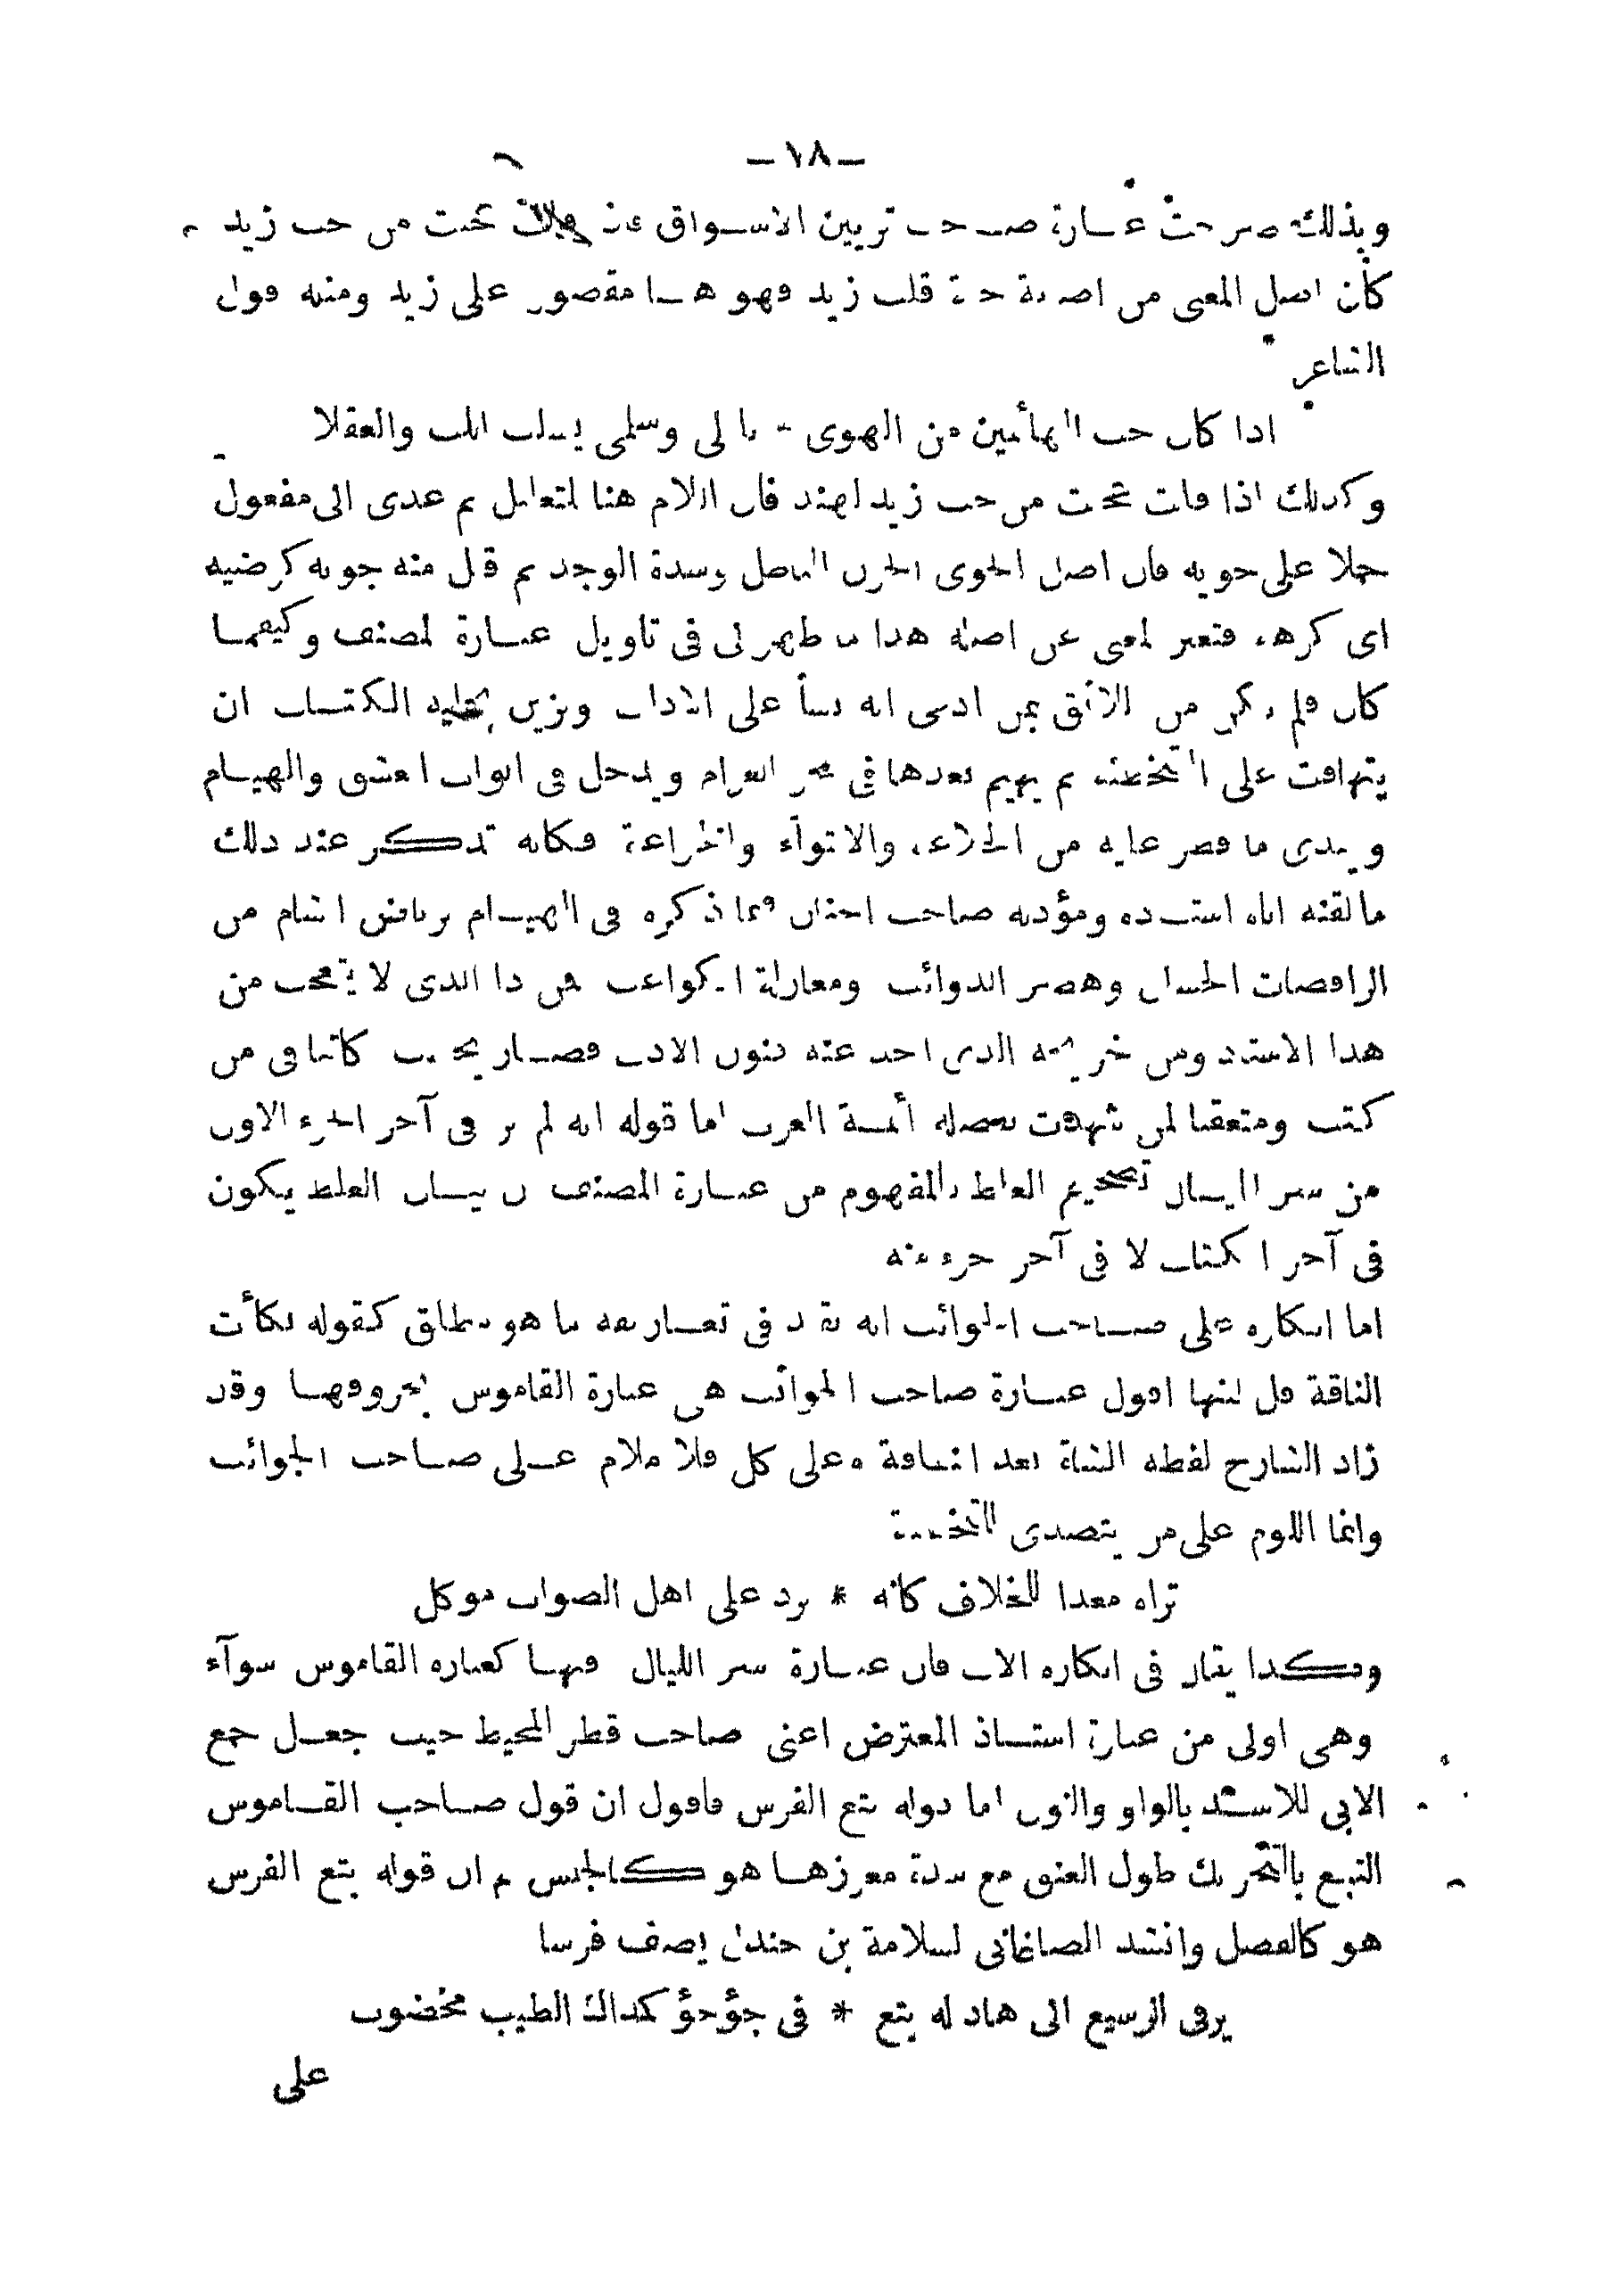 -١٨-
وبذلك صرحت عبارة صاحب تزيين الاسواق تحت من حب زيد
كان اصل المعنى من اصابة حبة قلب زيد فهو هنا مقصور على زيد ومنه قول
الشاعر
اذا كان حب الهائمين من الهوى * بليلى وسلمى يسلب اللب والعقلا
وكذلك اذا قلت تحت من حب زيد لهند فان اللام هنا للتعليل ثم عدى الى مفعول
حملا على جويه فان اصل الجوى الحزن الباطل وشدة الوجد ثم قيل منه جويه كرضيه
اى كرهه فتغير المعنى عن اصله هذا ما ظهر لى فى تأويل عبارة المصنف وكيفما
كان فلم يكن من الائق بمن ادعى انه نشأ على الاداب وتزين الكتاب ان
يتهافت على التخطئة ثم يهيم بعدها فى بحر الغرام ويدخل فى ابواب العشق والهيام
ويبدى ما قصر عليه من الخلاعة والالتوآء والخراعة فكانه تذكر عند ذلك
ما لقنه اياه استاذه ومؤدبه صاحب الجنان فيما ذكره فى الهيام برياض الشام من
الراقصات الحسان وهصر الذوائب ومغازلة الكواعب فمن ذا الذى لا يتعجب من
هذا الاستاذ ومن خريجه الذى اخذ عنه فنون الادب فصار يحسب كاتبا فى من
كتب ومتعقبا لمن شهدت بفضله أئمة العرب اما قوله انه لم ير فى آخر الجزء الاول
من سر الليال تصحيح الغلط فالمفهوم من عبارة المصنف ان بيان الغلط يكون
فى آخر الكتاب لا فى آخر جزء منه
اما انكاره على صاحب الجوائب انه يقيد فى تعاريفه ما هو مطلق كقوله بكأت
الناقة قل لبنها اقول عبارة صاحب الجوائب هى عبارة القاموس بحروفها وقد
زاد الشارح لفظه الشاة بعد الناقة وعلى كل فلا ملام على صاحب الجوائب
وانما اللوم على من يتصدى للتخطئة
تراه معدا للخلاف كانه * برد على اهل الصواب موكل
وهكذا يقال فى انكاره الاب فان عبارة سر الليال فيها كعباره القاموس سوآء
وهى اولى من عبارة استاذ المعترض اعنى صاحب قطر المحيط حيث جعل جمع
الابى للاسد بالواو والنون اما قوله بتع الفرس فاقول ان قول صاحب القاموس
البتع بالتحريك طول العنق مع شدة مغرزها هو كالجنس ثم ان قوله بتع الفرس
هو كالفصل وانشد الصاغانى لسلامة بن جندل يصف فرسا
يرقى الدسيع الى هاد له بتع * فى جؤجؤ كمداك الطيب مخضوب
على